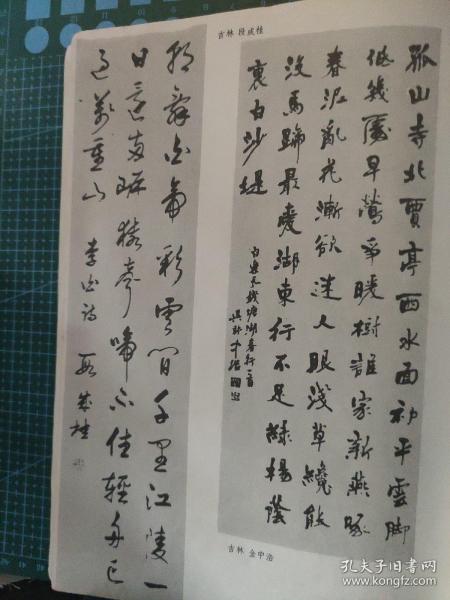 吉林 段成桂
孤山寺北賈亭西水面初平雲脚
低幾處早鶯爭暖樹誰家新燕啄
春泥亂花漸欲迷人眼淺草纔能
沒馬蹄最愛湖東行不足綠楊蔭
裏白沙堤
白樂天錢塘湖春行一首
中浩
朝辭白帝彩雲間千里江陵一
日還兩岸猿聲啼不住輕舟已
過萬重山 李白詩 段成桂
吉林 金中浩
孔夫子旧书网
www.kongfz.com